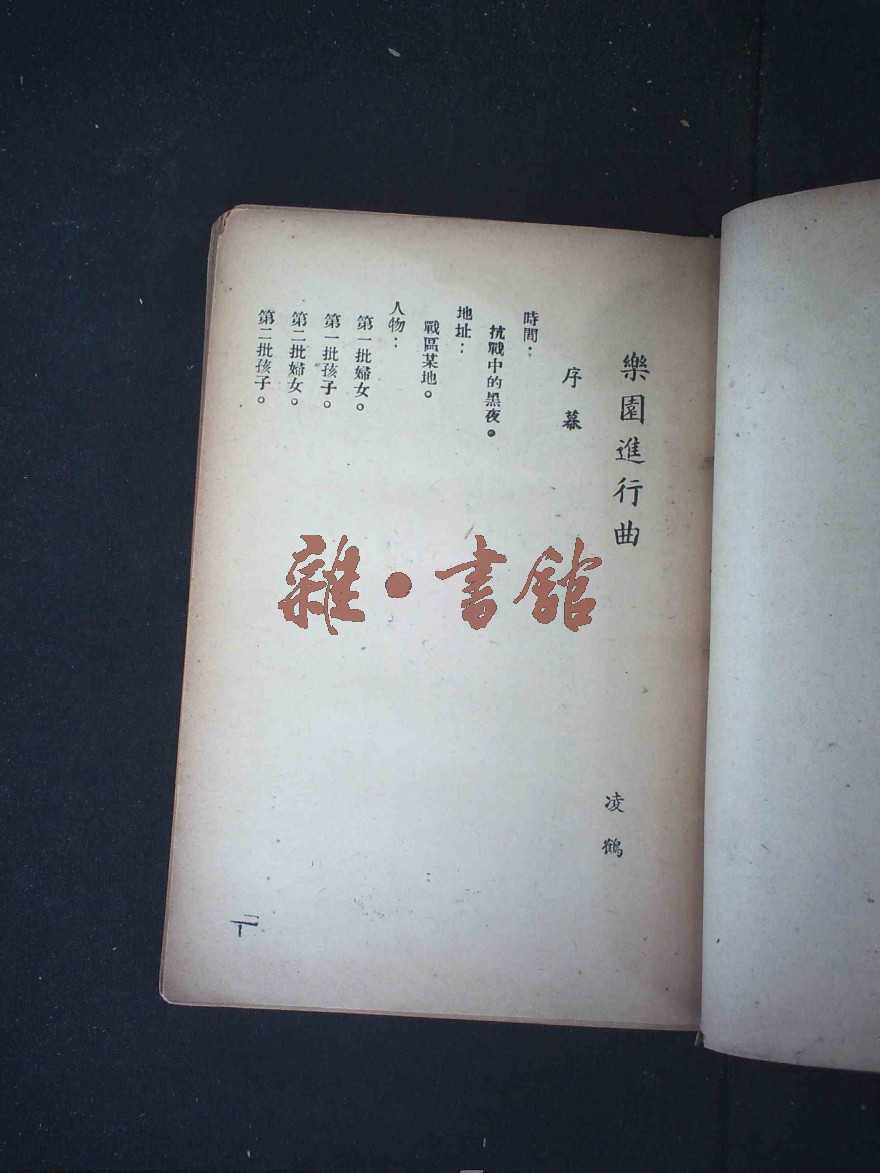 樂園進行曲
凌鶴
序幕
時間：
抗戰中的黑夜。
地址：
戰區某地。
人物：
第一批婦女。
第一批孩子。
第二批婦女。
第二批孩子。
雜·書館